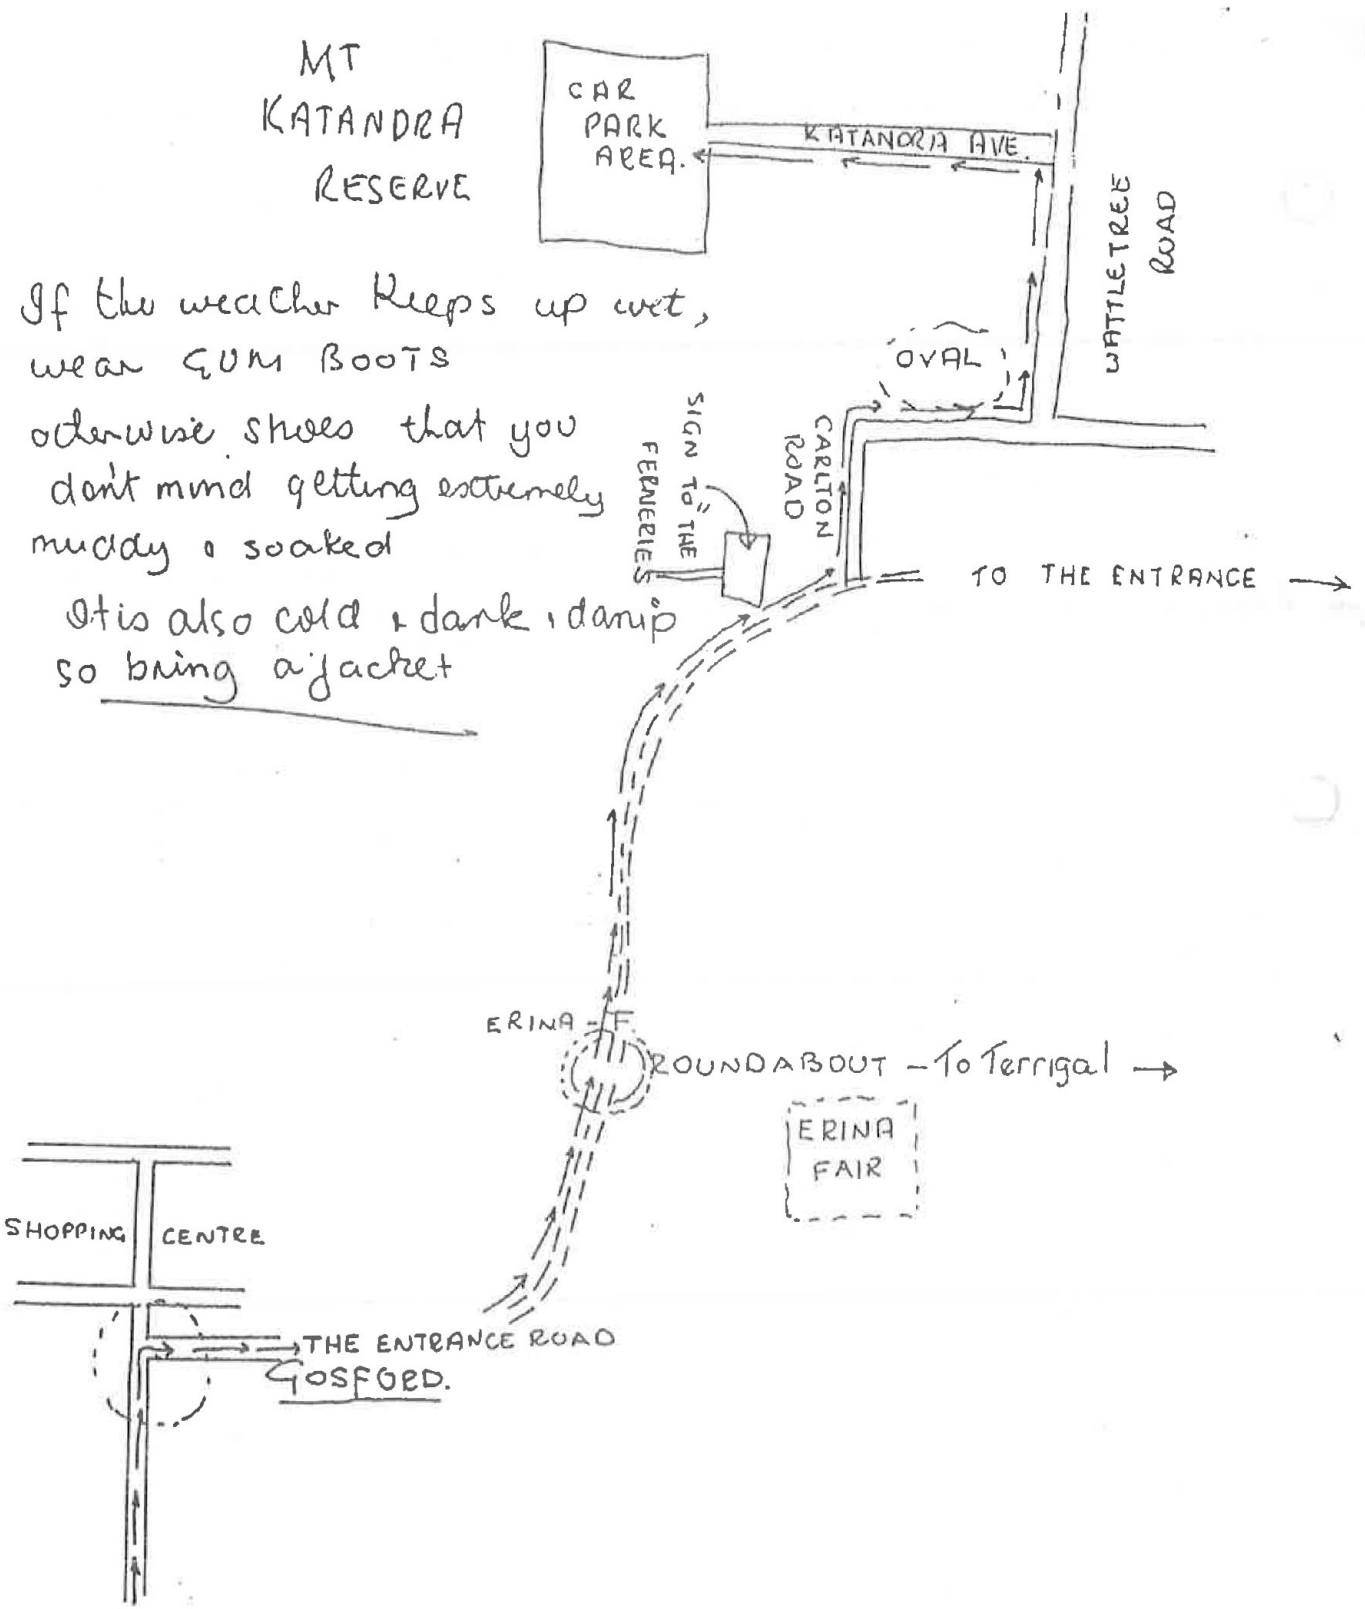 MT
KATANDRA
RESERVE
CAR
PARK
AREA.
KATANDRA AVE.
WATTLETREE
ROAD
If the weather keeps up wet,
wear GUM BOOTS
otherwise shoes that you
don't mind getting extremely
muddy & soaked
It is also cold & dark & damp
so bring a jacket
OVAL
SIGN TO "THE
FERNERIES
CARLTON
ROAD
TO THE ENTRANCE
ERINA - F.
ROUNDABOUT - To Terrigal
ERINA
FAIR
SHOPPING CENTRE
THE ENTRANCE ROAD
GOSFORD.